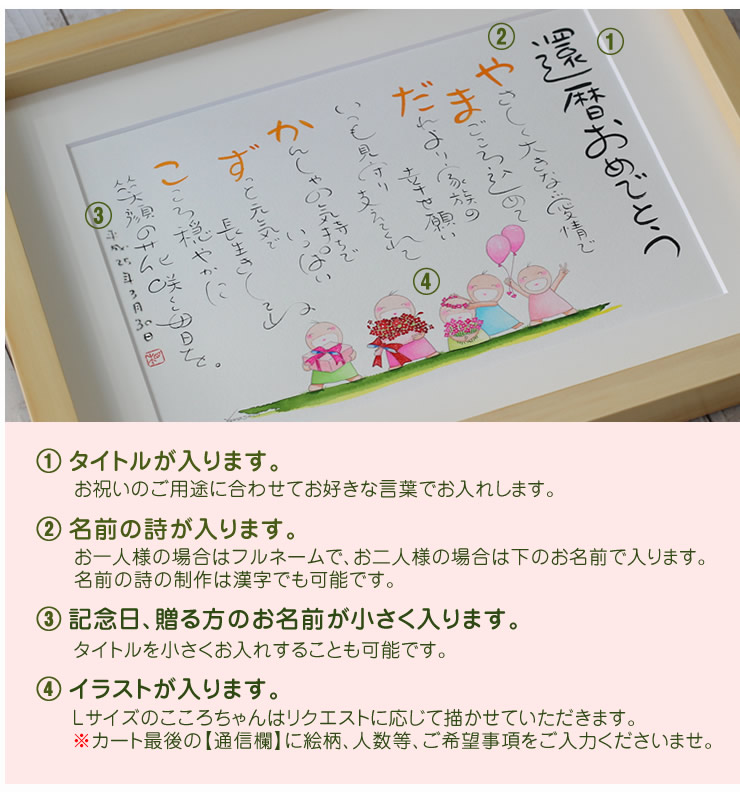 ①
還暦おめでとう
②
やさしく大きな愛情で
まごころ込めて
だれより家族の
幸せ願い
いつも見守り支えてくれて
かんしゃの気持ちで
いっぱい
ずっと元気で
長生きしてね
こころ穏やかに
笑顔のせんせ咲く毎日を。
③
平成25年3月30日
④
① タイトルが入ります。
お祝いのご用途に合わせてお好きな言葉でお入れします。
② 名前の詩が入ります。
お一人様の場合はフルネームで、お二人様の場合は下のお名前で入ります。
名前の詩の制作は漢字でも可能です。
③ 記念日、贈る方のお名前が小さく入ります。
タイトルを小さくお入れすることも可能です。
④ イラストが入ります。
Lサイズのこころちゃんはリクエストに応じて描かせていただきます。
※カート最後の【通信欄】に絵柄、人数等、ご希望事項をご入力くださいませ。